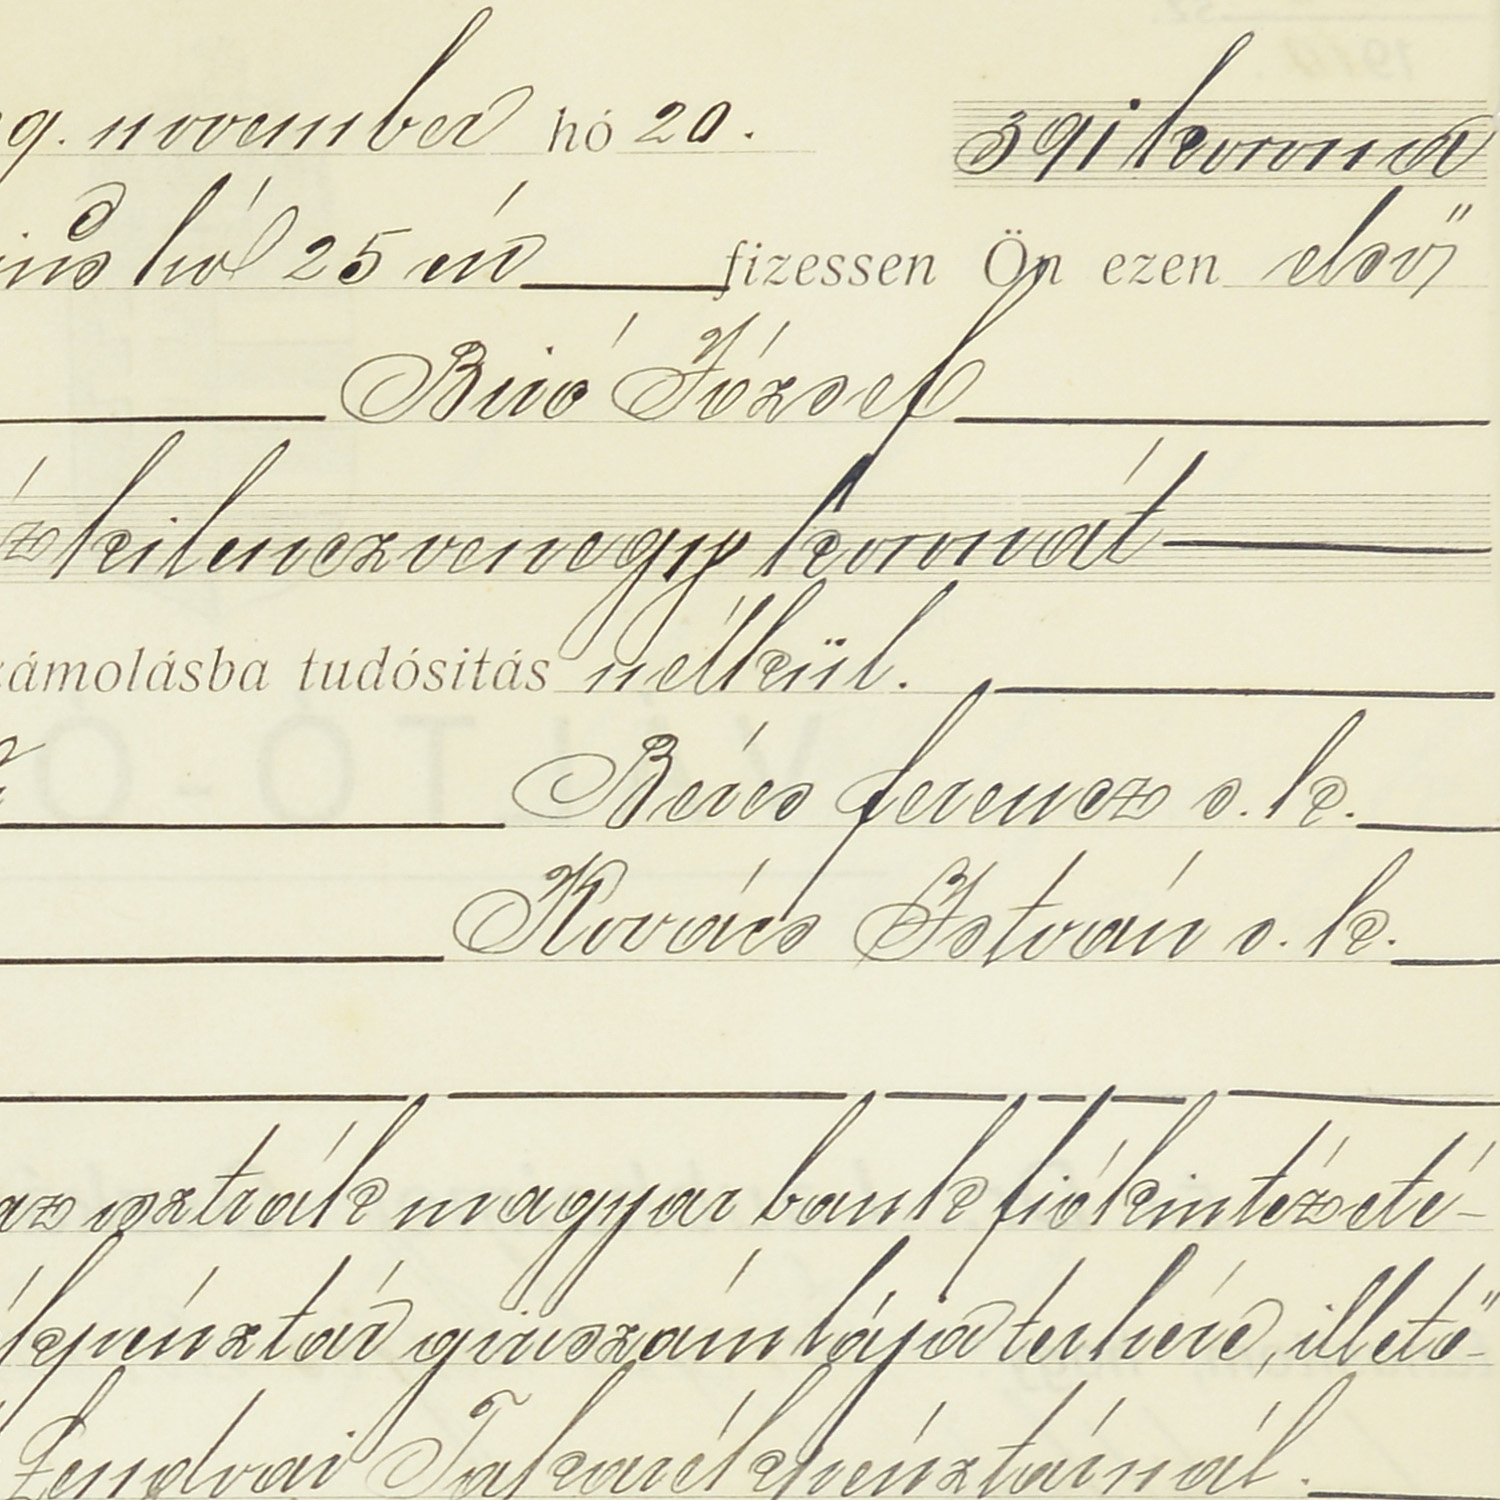 9. november hó 20. 391 korona
hó 25 én fizessen Ön ezen első
Biró József
kilenczvenegy koronát
ámolásba tudósitás nélkül.
Béres ferencz s. k.
Kovács István s. k.
az osztrák magyar bank fiókintézeté-
kpénztár giroszámlája terhére, illető-
Lendvai Takarékpénztárnál.